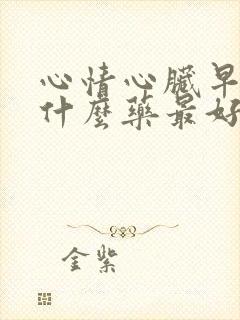 心情心臟早
什麼藥最好
金紫